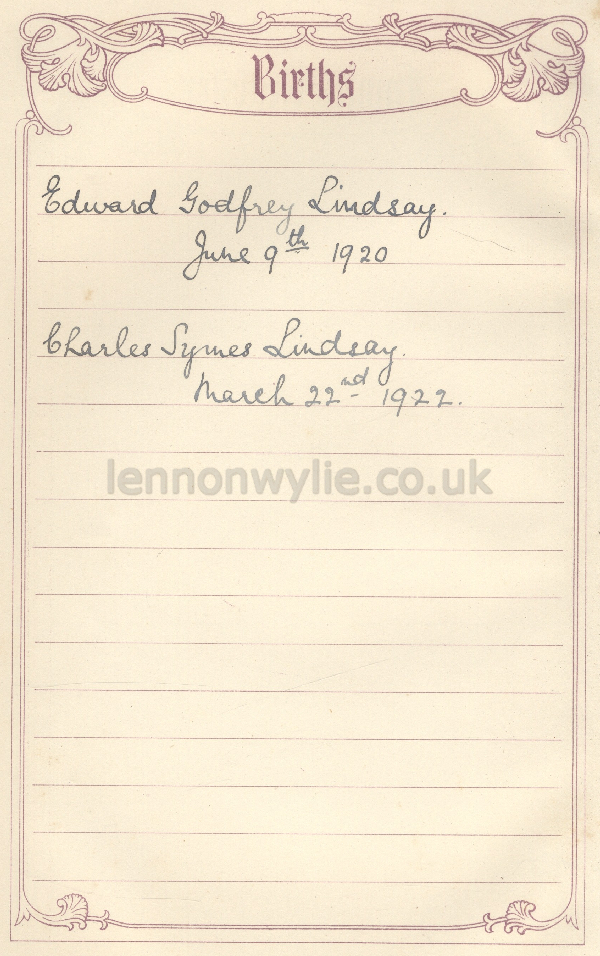 Births
Edward Godfrey Lindsay.
June 9th 1920
Charles Symes Lindsay.
March 22nd 1922.
lennonwylie.co.uk